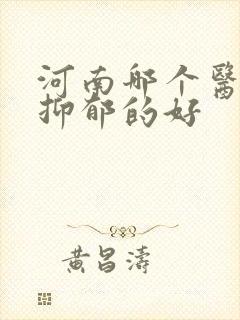 河南哪个醫
抑郁的好
黄昌濤